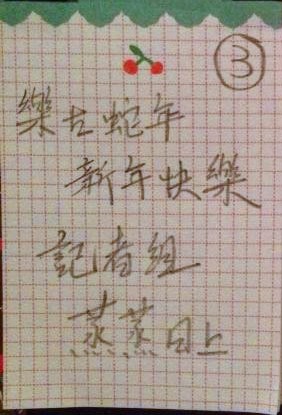 ③
樂古蛇年
新年快樂
記者組
蒸蒸日上